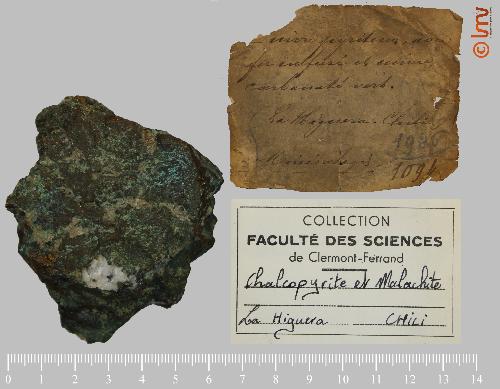 Cuivre pyriteux, ou
fer sulfuré et cuivre
carbonaté vert.
La Higuera. Chili
1094
COLLECTION
FACULTÉ DES SCIENCES
de Clermont-Ferrand
Chalcopyrite et Malachite
La Higuera CHILI
0 1 2 3 4 5 6 7 8 9 10 11 12 13 14